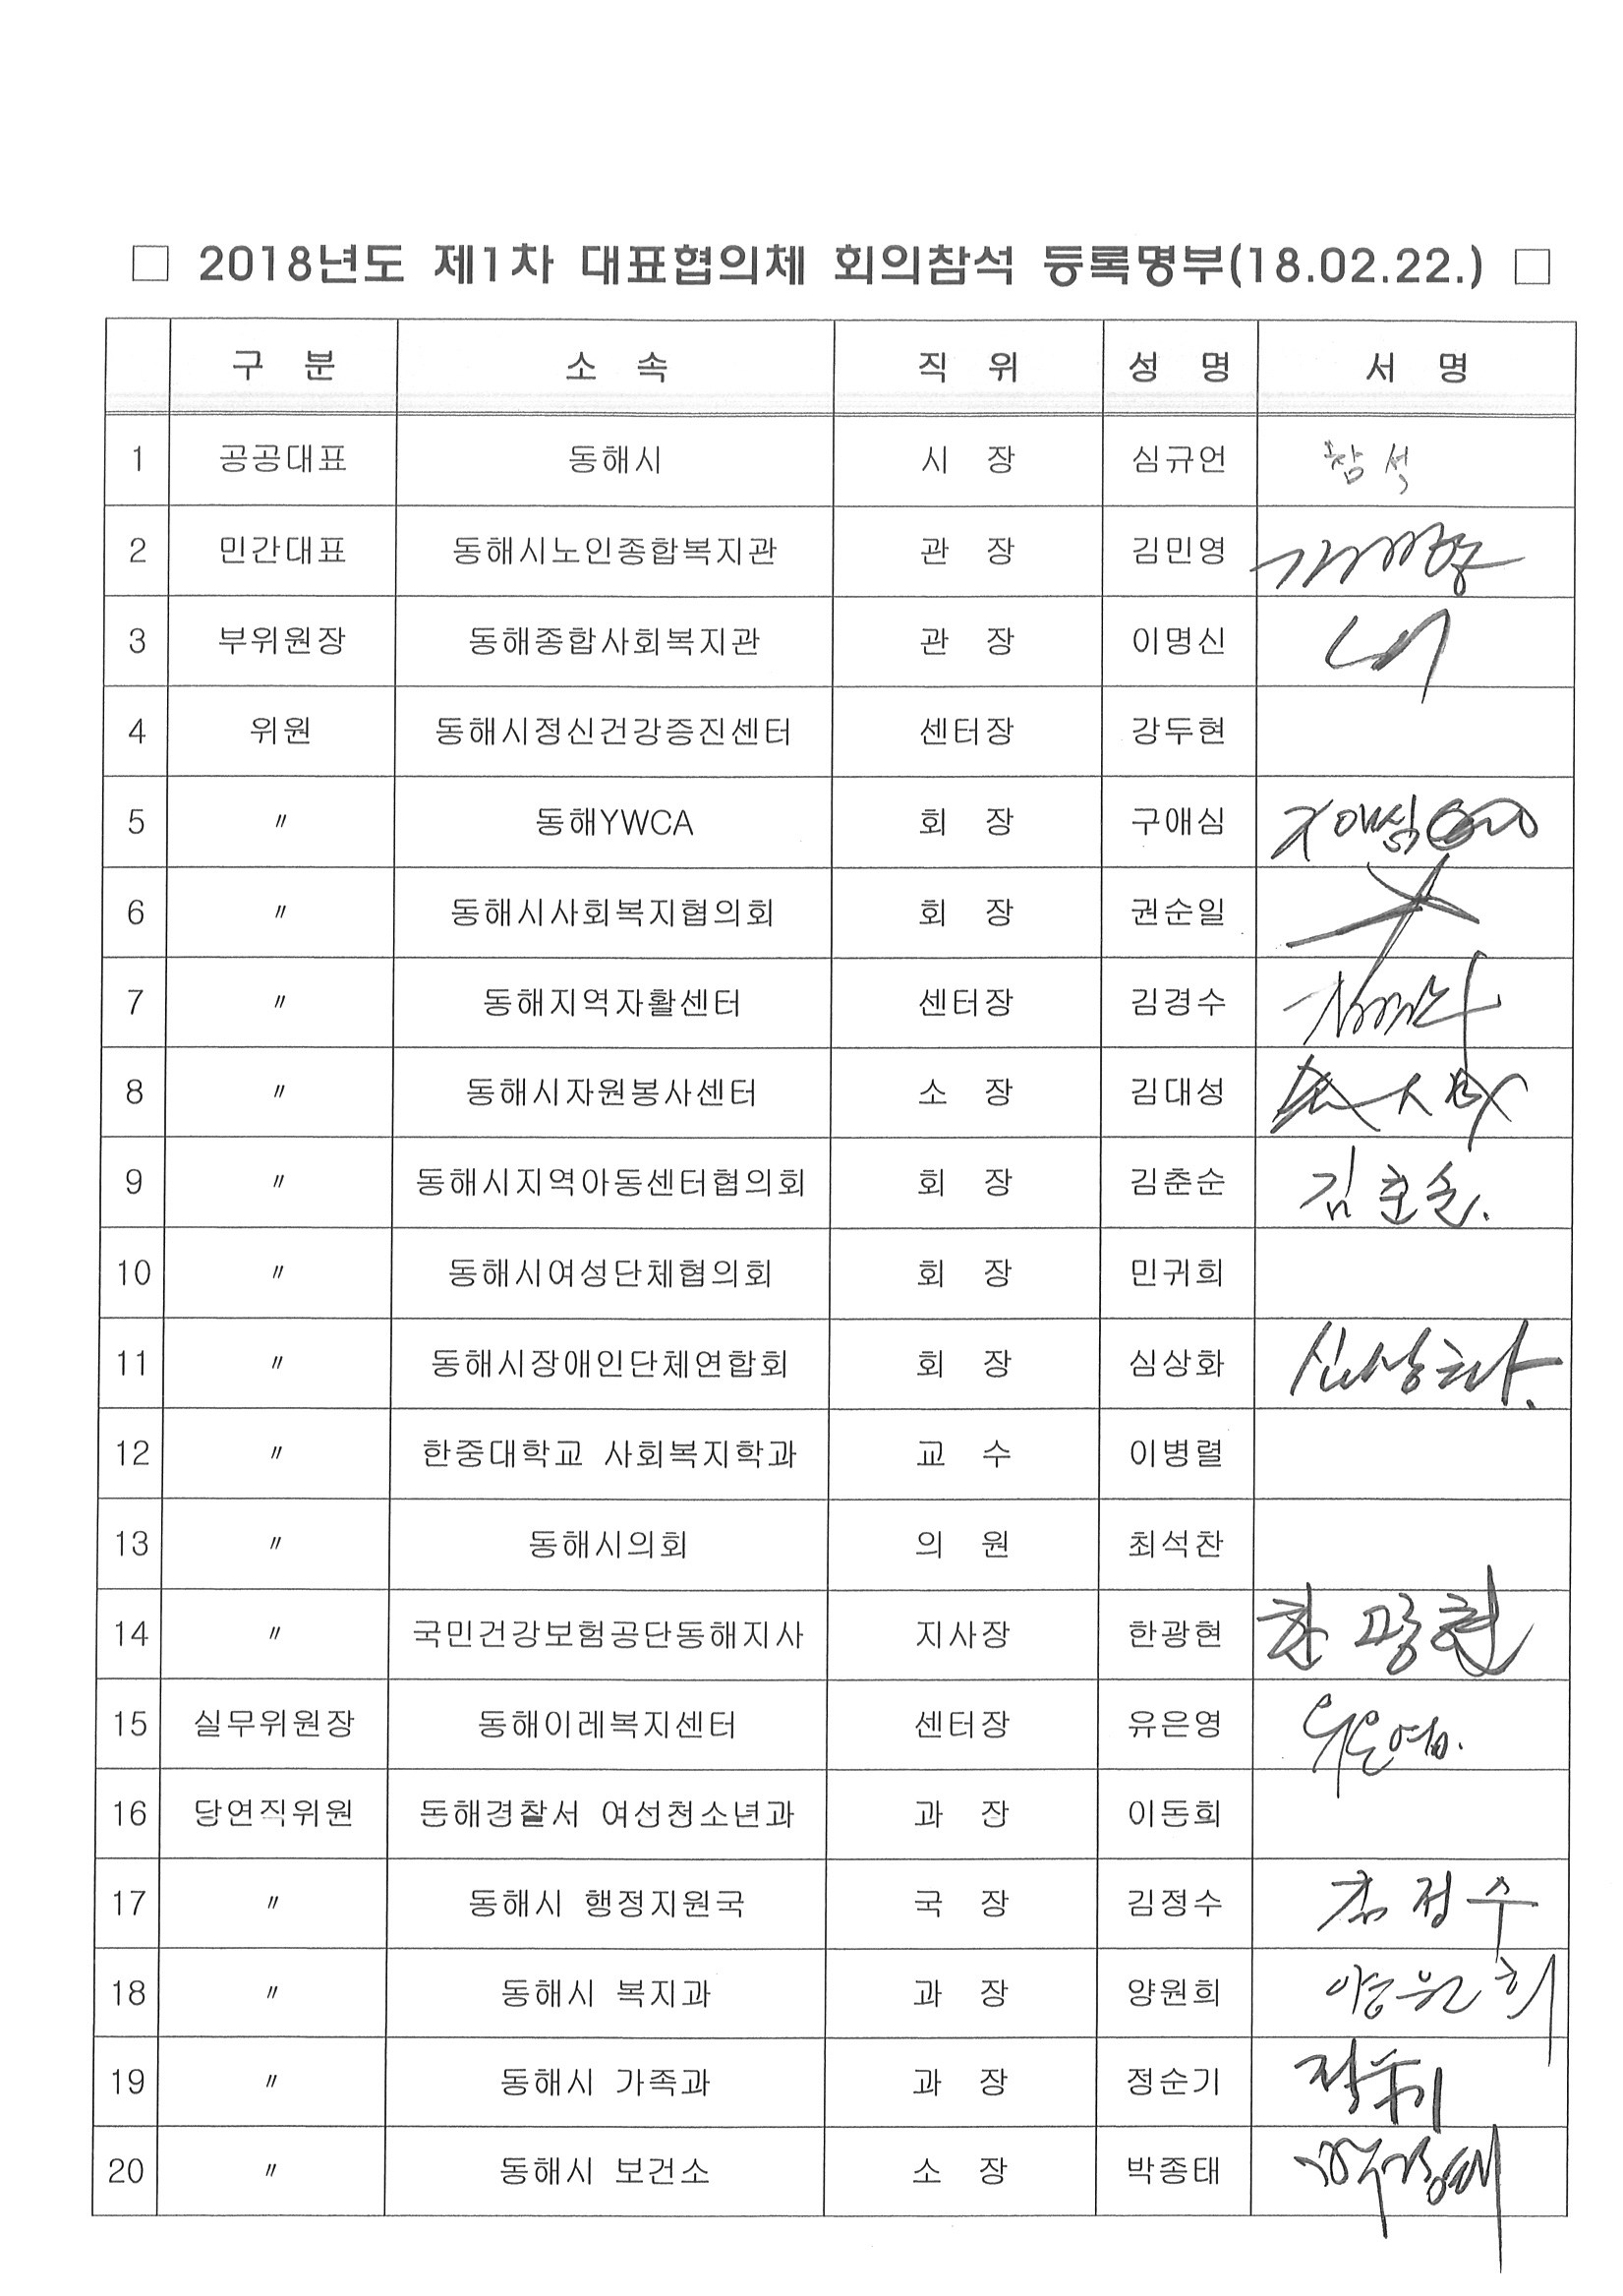 □ 2018년도 제1차 대표협의체 회의참석 등록명부(18.02.22.) □
구 분 소 속 직 위 성 명 서 명
1 공공대표 동해시 시 장 심규언 참석
2 민간대표 동해시노인종합복지관 관 장 김민영
3 부위원장 동해종합사회복지관 관 장 이명신
4 위원 동해시정신건강증진센터 센터장 강두현
5 〃 동해YWCA 회 장 구애심 구애심
6 〃 동해시사회복지협의회 회 장 권순일
7 〃 동해지역자활센터 센터장 김경수
8 〃 동해시자원봉사센터 소 장 김대성
9 〃 동해시지역아동센터협의회 회 장 김춘순 김춘순.
10 〃 동해시여성단체협의회 회 장 민귀희
11 〃 동해시장애인단체연합회 회 장 심상화 심상화.
12 〃 한중대학교 사회복지학과 교 수 이병렬
13 〃 동해시의회 의 원 최석찬
14 〃 국민건강보험공단동해지사 지사장 한광현 한광현
15 실무위원장 동해이레복지센터 센터장 유은영 유은영.
16 당연직위원 동해경찰서 여성청소년과 과 장 이동희
17 〃 동해시 행정지원국 국 장 김정수 김정수
18 〃 동해시 복지과 과 장 양원희 양원희
19 〃 동해시 가족과 과 장 정순기 정순기
20 〃 동해시 보건소 소 장 박종태 박종태